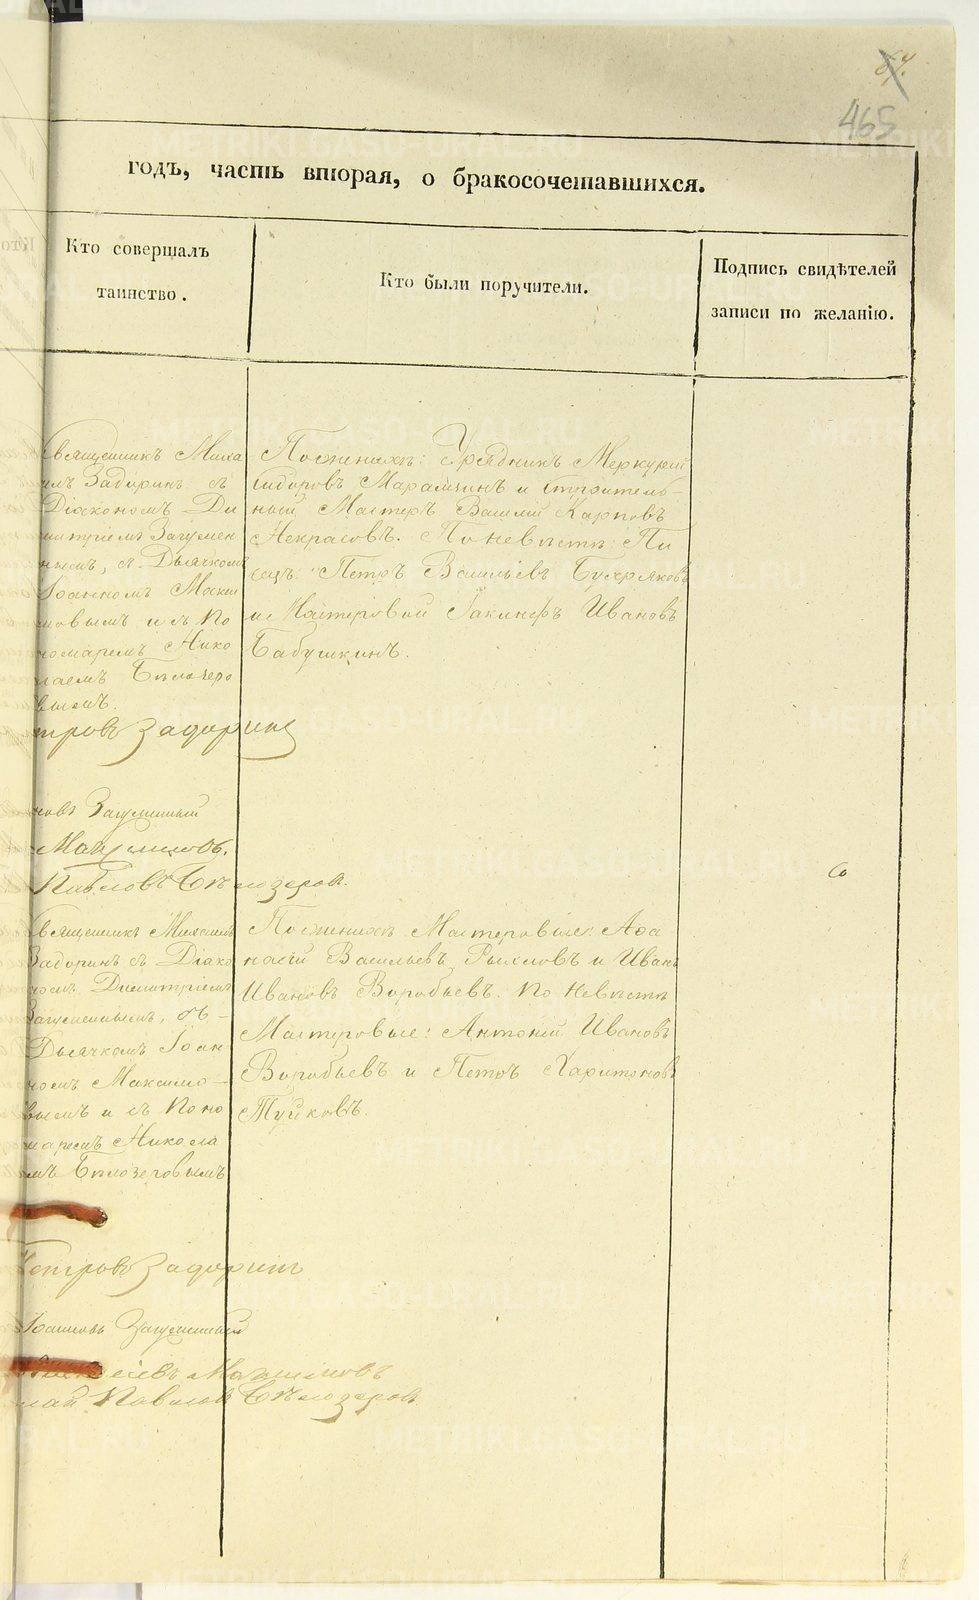 87.
465
годъ, часть вторая, о бракосочетавшихся.
Кто совершалъ
таинство.
Кто были поручители.
Подпись свидѣтелей
записи по желанію.
Священникъ Миха
илъ Задоринъ съ
Діакономъ Ди
митріемъ Загумен
нымъ, съ Дьячкомъ
Іоанномъ Макси
мовымъ и съ По
номаремъ Нико
лаемъ Бѣлозеро
вымъ.
Петровъ Задоринъ
Загуменный
Максимовъ.
Павловъ Бѣлозеровъ.
По женихѣ: Урядникъ Меркурій
Сидоровъ Марамзинъ и строитель-
ный Мастеръ Василій Карповъ
Некрасовъ. По невѣстѣ: Пи
сецъ: Петръ Васильевъ Бухряковъ
и Мастеровой Іакинфъ Ивановъ
Бабушкинъ.
Священникъ Михаилъ
Задоринъ съ Діако
номъ Димитріемъ
Загуменнымъ, съ-
Дьячкомъ Іоан
номъ Максимо-
вымъ и съ Поно
маремъ Никола
емъ Бѣлозеровымъ
Петровъ Задоринъ
Іоанновъ Загуменный
Максимовъ
Павловъ Бѣлозеровъ
По женихѣ Мастеровые: Афа
насій Васильевъ Рыловъ и Иванъ
Ивановъ Воробьевъ. По невѣстѣ
Мастеровые: Антоній Ивановъ
Воробьевъ и Петръ Харитоновъ
Туйковъ.
METRIKI.GASO-URAL.RU